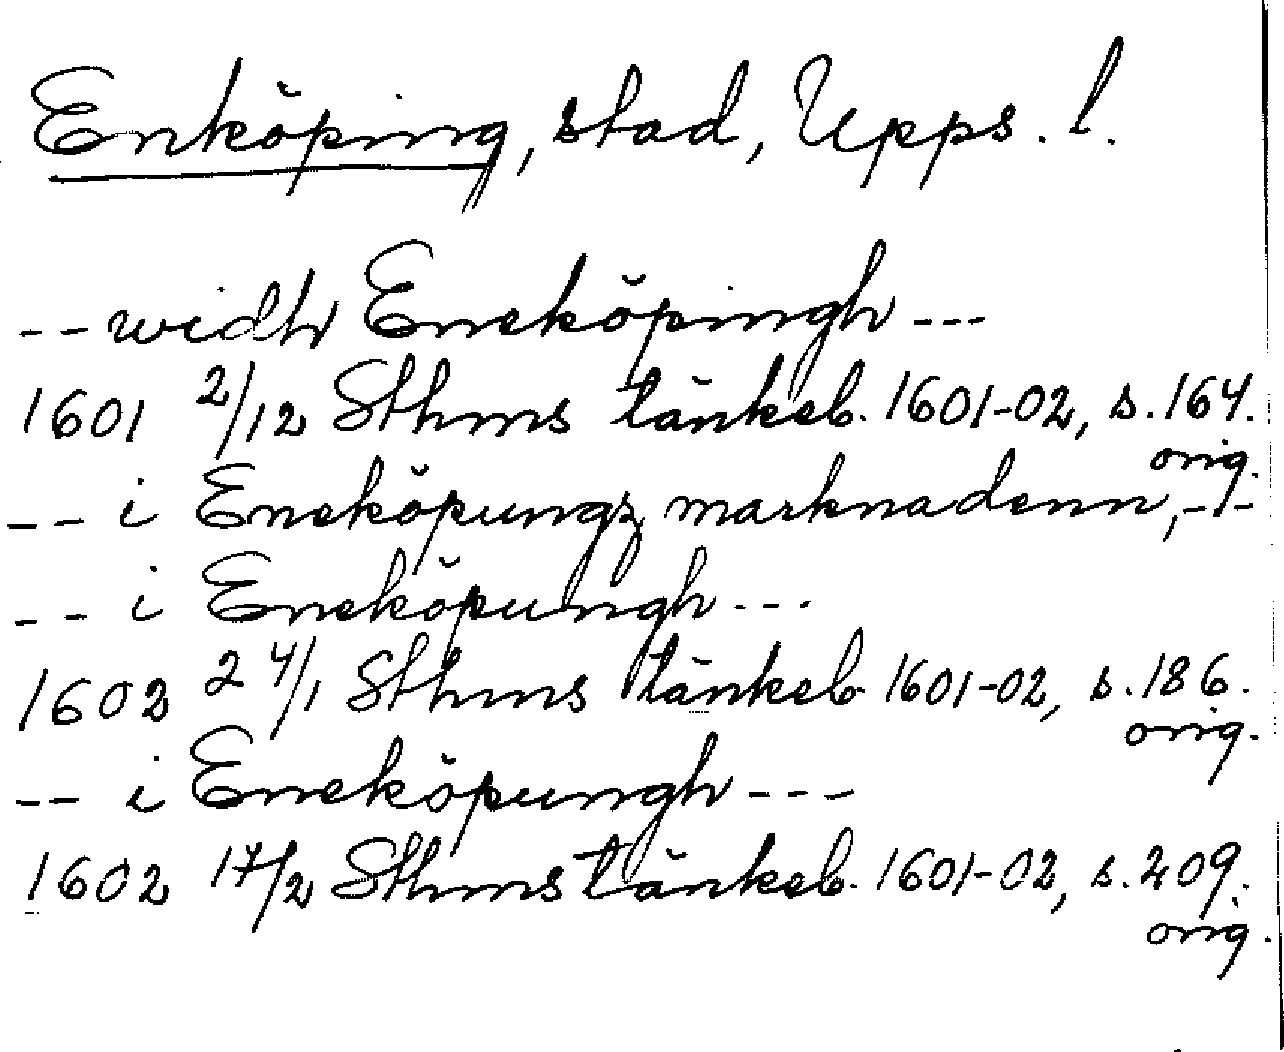 Enköping, stad, Upps. l.
-- widh Eneköpingh ---
1601 2/12 Sthms tänkeb. 1601-02, s. 164.
orig.
-- i Eneköpungz marknadenn, ---
-- i Eneköpungh ---
1602 24/1 Sthms tänkeb 1601-02, s. 186.
orig.
-- i Eneköpungh ---
1602 17/2 Sthms tänkeb. 1601-02, s. 209.
orig.